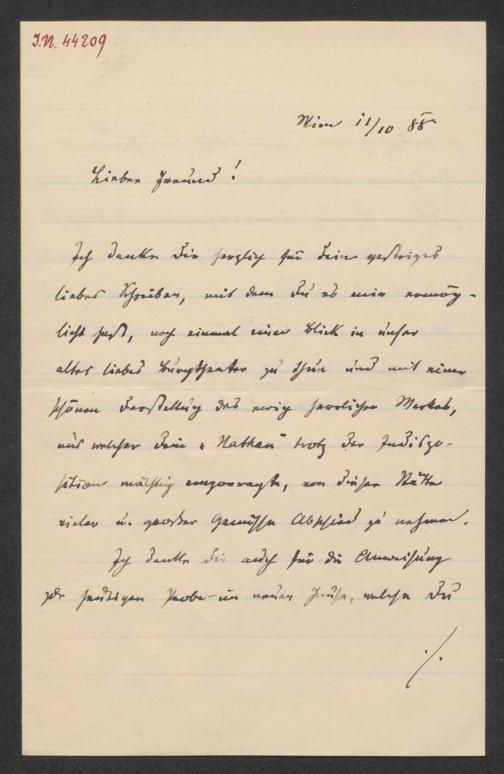 J.N. 44209
Wien 11/10 88
Lieber Freund!
Ich danke Dir herzlich für Dein gestriges
liebes Schreiben, mit dem Du es mir ermög-
licht hast, noch einmal einen Blick in unser
altes liebes Burgtheater zu thun und mit einer
schönen Darstellung des ewig herrlichen Werkes,
aus welcher Dein „Nathan" trotz der Indispo-
sition mächtig emporragte, von dieser Stätte
vieler u. großer Genüsse Abschied zu nehmen.
Ich danke Dir auch für die Anweisung
zur heutigen Probe im neuen Hause, welche Du
./.